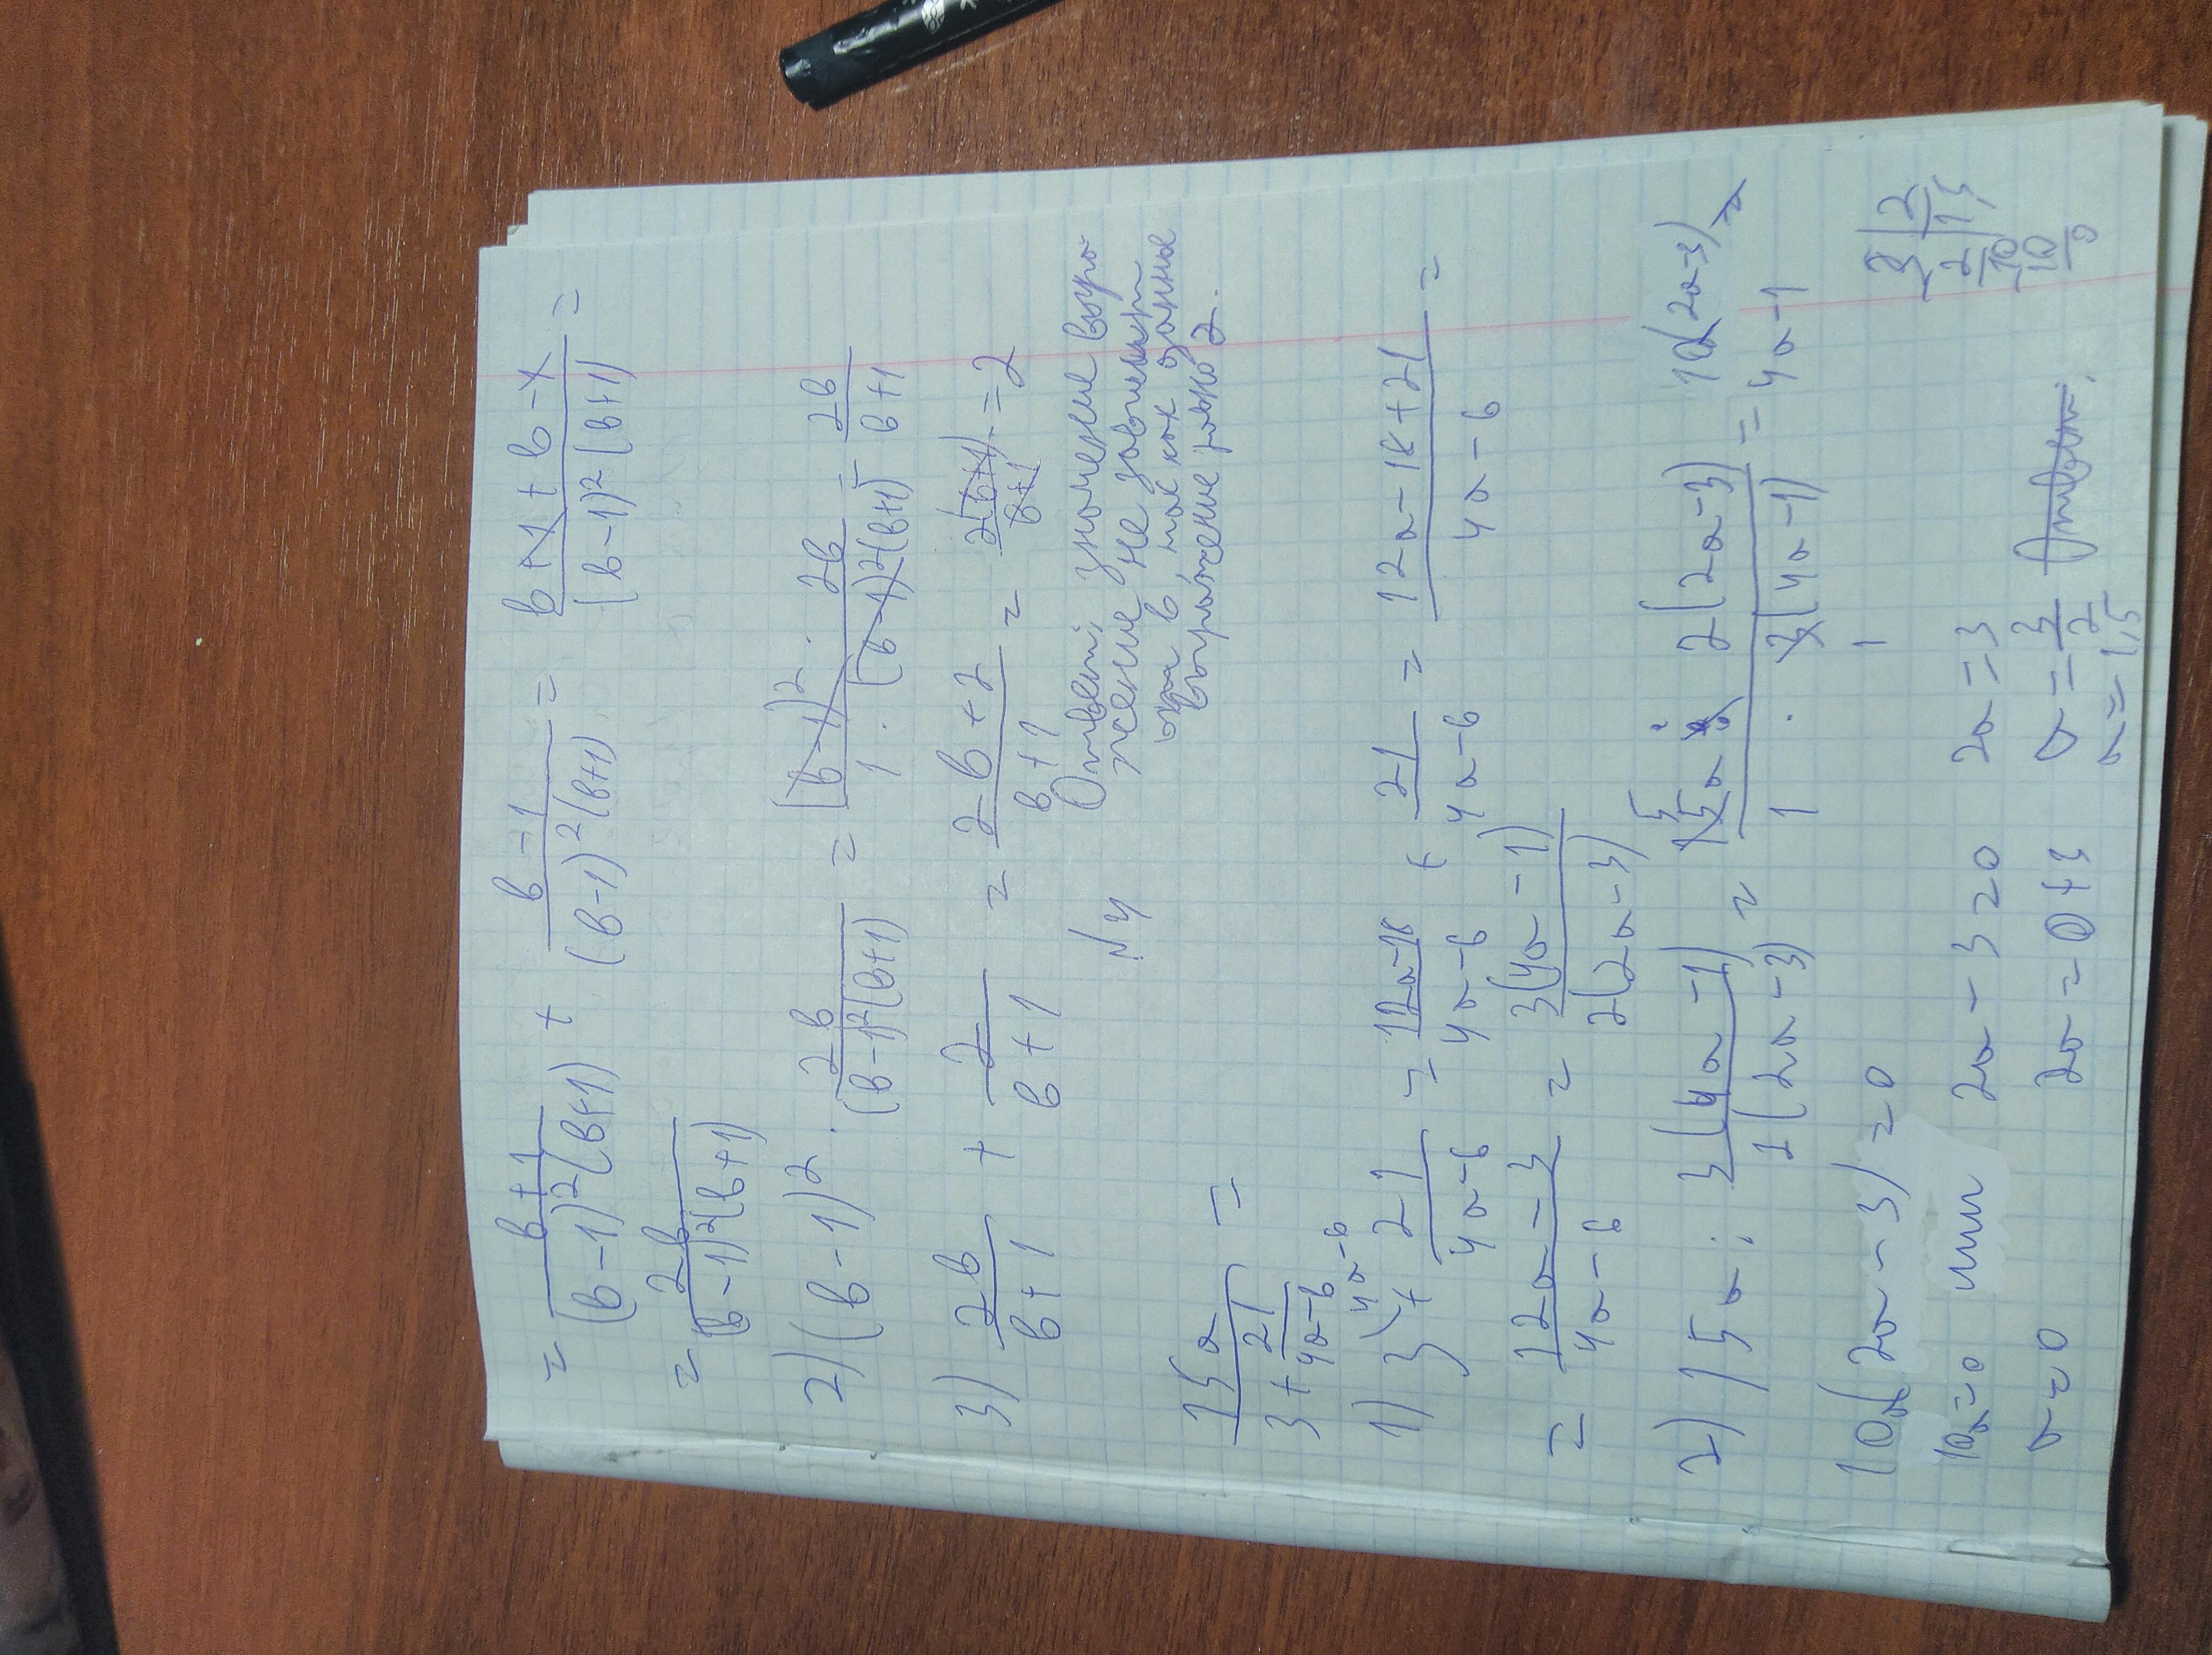 = (в+1)/((в-1)²(в+1)) + (в-1)/((в-1)²(в+1)) = (в+1+в-1)/((в-1)²(в+1)) =
= 2в/((в-1)²(в+1))
2) (в-1)² · 2в/((в-1)²(в+1)) = ((в-1)² · 2в)/(1 · (в-1)²(в+1)) = 2в/(в+1)
3) 2в/(в+1) + 2/(в+1) = (2в+2)/(в+1) = 2(в+1)/(в+1) = 2
Ответ: значение выра
жение не зависит
от в, так как данное
выражение равно 2.
N4
15a/(3 + 21/(4a-6)) =
1) 3 + 21/(4a-6) = (12a-18)/(4a-6) + 21/(4a-6) = (12a-18+21)/(4a-6) =
= (12a-3)/(4a-6) = 3(4a-1)/(2(2a-3))
2) 15a : 3(4a-1)/(2(2a-3)) = (15a · 2(2a-3))/(1 · 3(4a-1)) = 10a(2a-3)/(4a-1)
10a(2a-3) = 0
10a=0 или 2a-3=0 2a=3
a=0 2a=0+3 a=3/2
a=1,5
3 | 2
2 | 1,5
10
10
0